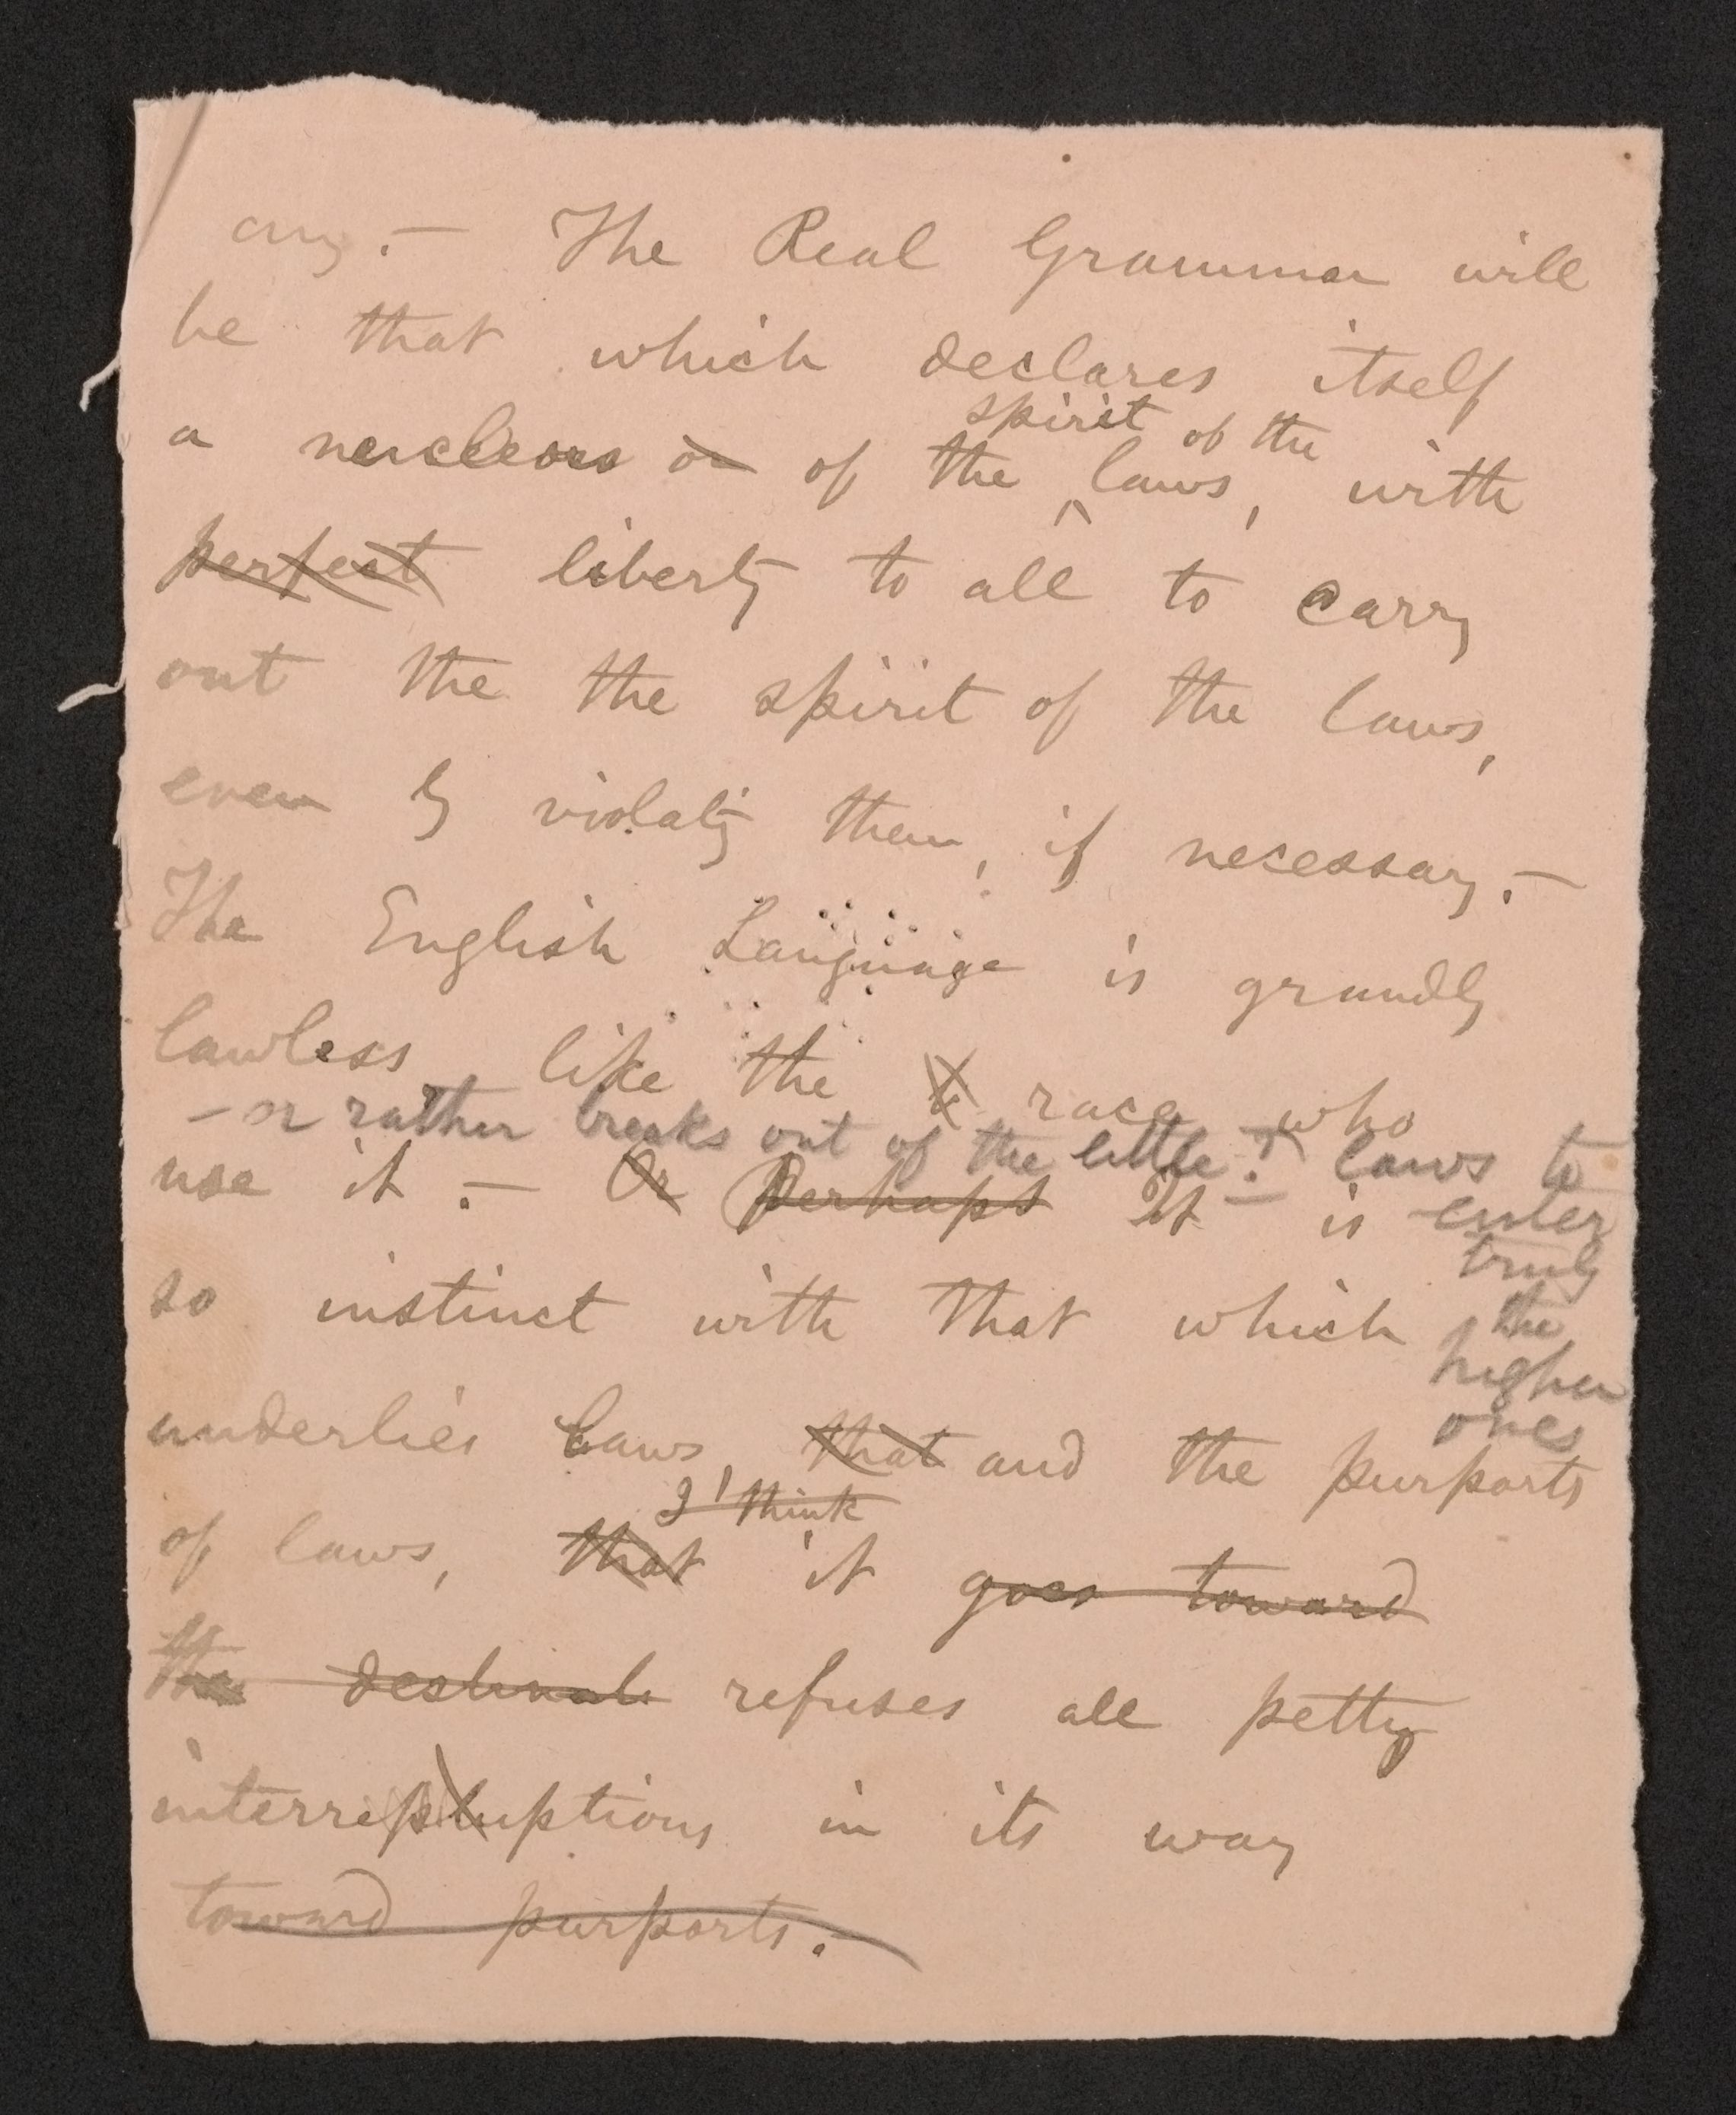 any.— The Real Grammar will
be that which declares itself
a nucleous or of the laws, with
spirit of the
perfect liberty to all to carry
out the the spirit of the laws,
even by violatg them, if necessary.—
The English Language is grandly
lawless like the t race who
— or rather breaks out of the little laws to
enter
truly
the
higher
ones
use it.— Or Perhaps It is
so instinct with that which
underlies laws, that and the purports
of laws, that it goes toward
I think
the destinati refuses all petty
interrepluptions in its way
toward purports.—